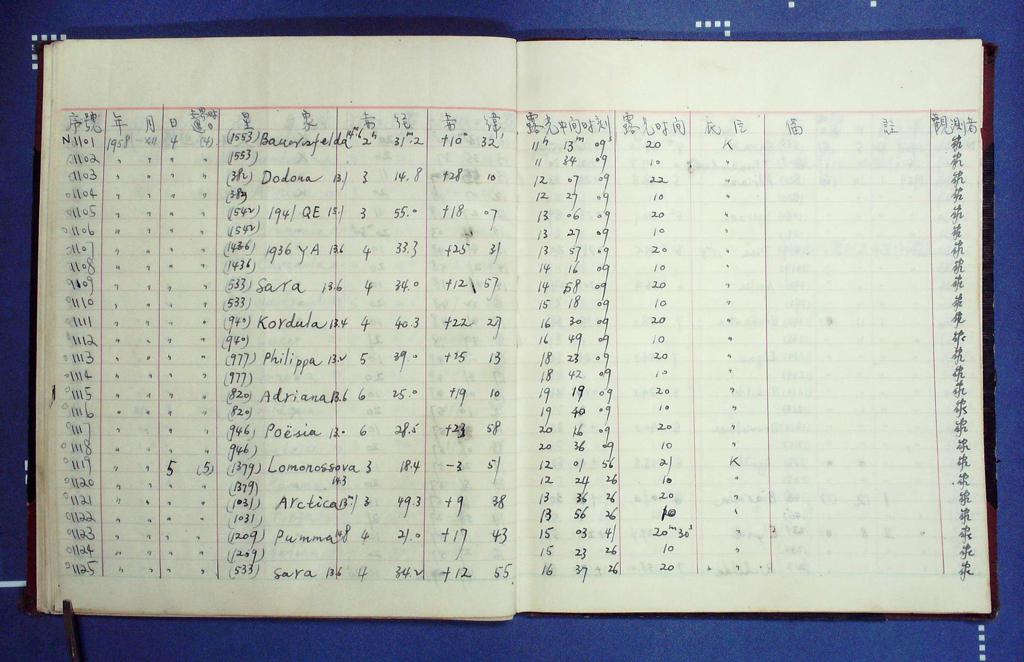 序號 年 月 日 星 象 赤 經 赤 緯 露光中間時刻 露光時間 底片 備 註 觀測者
N1101 1958 XII 4 (4) (1553) Bauersfelda 14.6 2h 31m.2 +10° 32' 11h 13m 09s 20 K
1102 " " " " (1553) 11 34 09 10 "
1103 " " " " (382) Dodona 13.1 3 14.8 +28 10 12 07 09 22 "
1104 " " " " (382) 12 27 09 10 "
1105 " " " " (1542) 1941 QE 15.1 3 55.0 +18 07 13 06 09 20 "
1106 " " " " (1542) 13 27 09 10 "
1107 " " " " (1436) 1936 YA 13.6 4 33.3 +25 31 13 57 09 20 "
1108 " " " " (1436) 14 16 09 10 "
1109 " " " " (533) Sara 13.6 4 34.0 +12 57 14 58 09 20 "
1110 " " " " (533) 15 18 09 10 "
1111 " " " " (940) Kordula 13.4 4 40.3 +22 27 16 30 09 20 "
1112 " " " " (940) 16 49 09 10 "
1113 " " " " (977) Philippa 13.2 5 39.0 +25 13 18 23 09 20 "
1114 " " " " (977) 18 42 09 10 "
1115 " " " " (820) Adriana 13.6 6 25.0 +19 10 19 19 09 20 "
1116 " " " " (820) 19 40 09 10 "
1117 " " " " (946) Poësia 13.0 6 28.5 +23 58 20 16 09 20 "
1118 " " " " (946) 20 36 09 10 "
1119 " " 5 (5) (1379) Lomonossova 3 18.4 -3 51 12 01 56 21 K
1120 " " " " (1379) 14.3 12 24 26 10 "
1121 " " " " (1031) Arctica 13.1 3 49.3 +9 38 13 36 26 20 "
1122 " " " " (1031) 13 56 26 10 "
1123 " " " " (1209) Pumma 14.8 4 21.0 +17 43 15 03 41 20m 30s "
1124 " " " " (1209) 15 23 26 10 "
1125 " " " " (533) Sara 13.6 4 34.2 +12 55 16 37 26 20 "